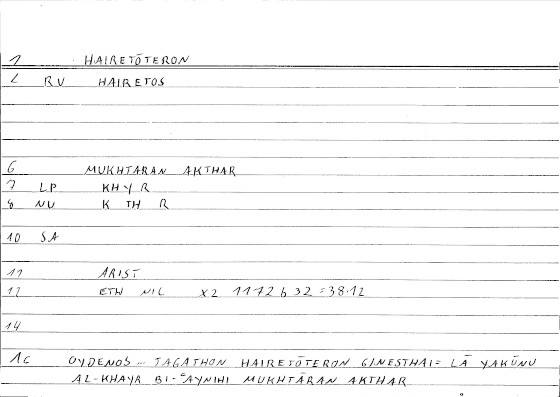 1 HAIRETŌTERON
2 RV HAIRETOS
6 MUKHTĀRAN AKTHAR
7 LP KHYR
8 NU KTHR
10 SA
11 ARIST
12 ETH NIC X2 1172b32 = 38.12
14
1c OYDENOS ... TAGATHON HAIRETŌTERON GINESTHAI = LĀ YAKŪNU
AL-KHAYR BI-ʿAYNIHI MUKHTĀRAN AKTHAR